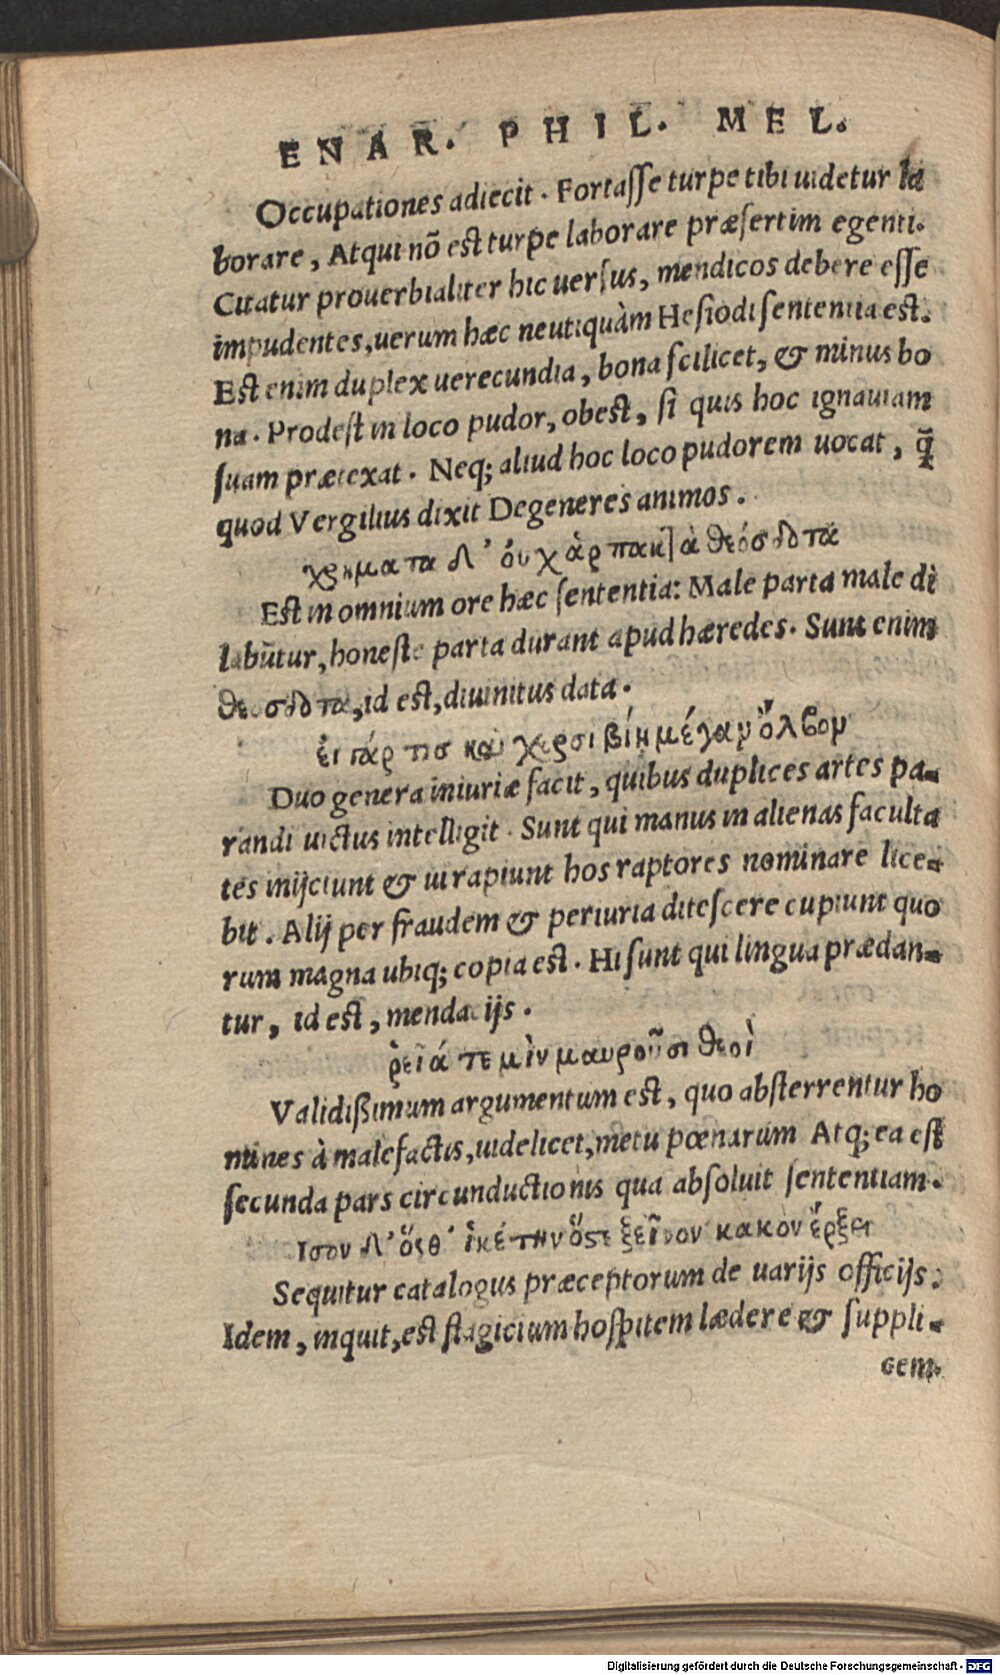 ENAR. PHIL. MEL.
Occupationes adiecit. Fortaſſe turpe tibi uidetur la
borare, Atqui nõ eſt turpe laborare præſertim egenti.
Citatur prouerbialiter hic uerſus, mendicos debere eſſe
impudentes, uerum hæc neutiquàm Heſiodi ſententia eſt.
Eſt enim duplex uerecundia, bona ſcilicet, & minus bo
na. Prodeſt in loco pudor, obeſt, ſi quis hoc ignauiam
ſuam prætexat. Neq; aliud hoc loco pudorem uocat, q̃
quod Vergilius dixit Degeneres animos.
χρηματα δ' ὀυχ ἁρπακτὰ θεόσδοτα
Eſt in omnium ore hæc ſententia: Male parta male di
labũtur, honeſte parta durant apud hæredes. Sunt enim
θεοσδοτα, id eſt, diuinitus data.
ἐι γάρ τισ καὶ χερσι βίη μέγαν ὄλβον
Duo genera iniuriæ facit, quibus duplices artes pa-
randi uictus intelligit. Sunt qui manus in alienas faculta
tes inijciunt & ui rapiunt hos raptores nominare lice-
bit. Alij per fraudem & periuria diteſcere cupiunt quo
rum magna ubiq; copia eſt. Hi ſunt qui lingua prædan-
tur, id eſt, mendacijs.
ῥεῖά τε μὶν μαυροῦσι θεοὶ
Validißimum argumentum eſt, quo abſterrentur ho
mines à malefactis, uidelicet, metu pœnarum Atq; ea eſt
ſecunda pars circunductionis qua abſoluit ſententiam.
Ισον δ' ὅσθ' ἱκέτην ὅστε ξεῖνον κακὸν ἔρξει
Sequitur catalogus præceptorum de uarijs officijs.
Idem, inquit, eſt flagicium hoſpitem lædere & ſuppli-
cem.
Digitalisierung gefördert durch die Deutsche Forschungsgemeinschaft - DFG